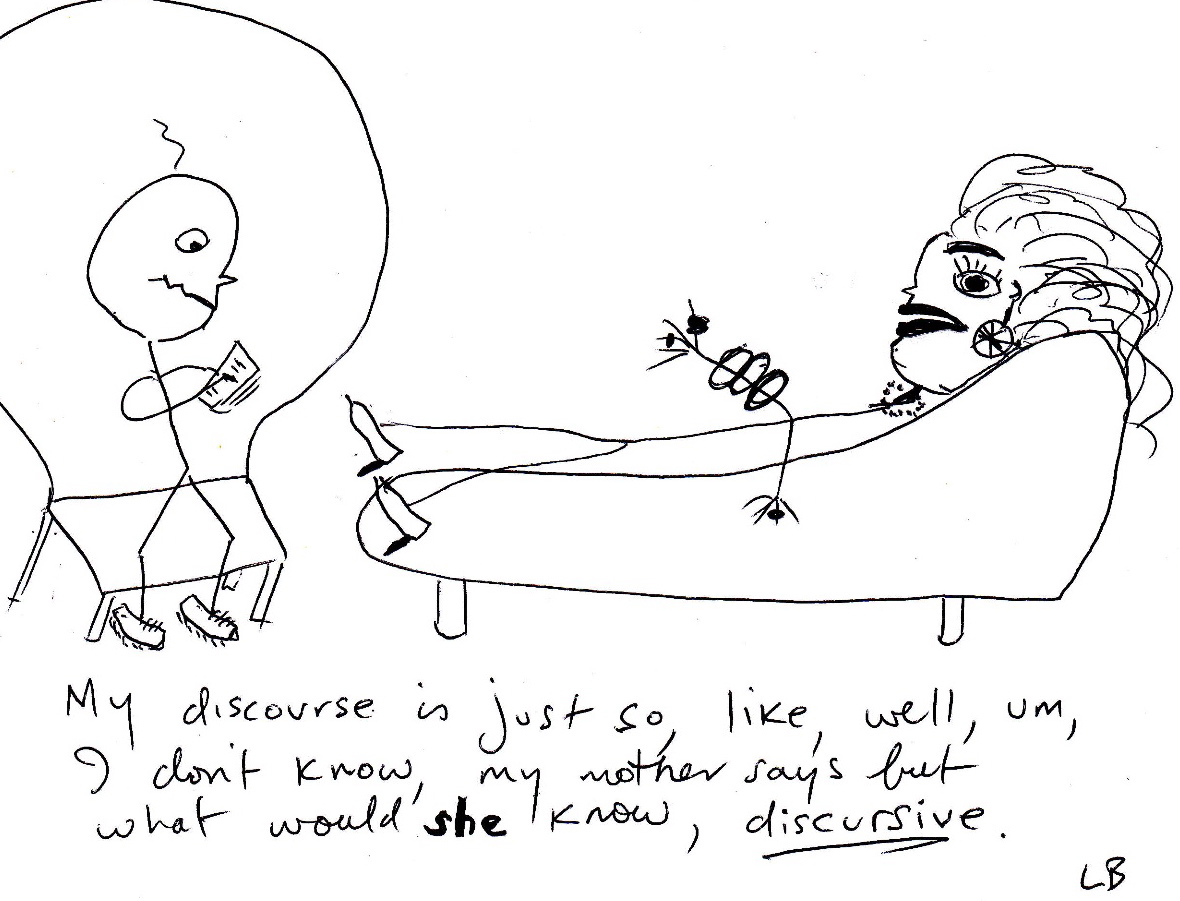 My discourse is just so, like, well, um,
I don't know, my mother says but
what would she know, discursive.
LB